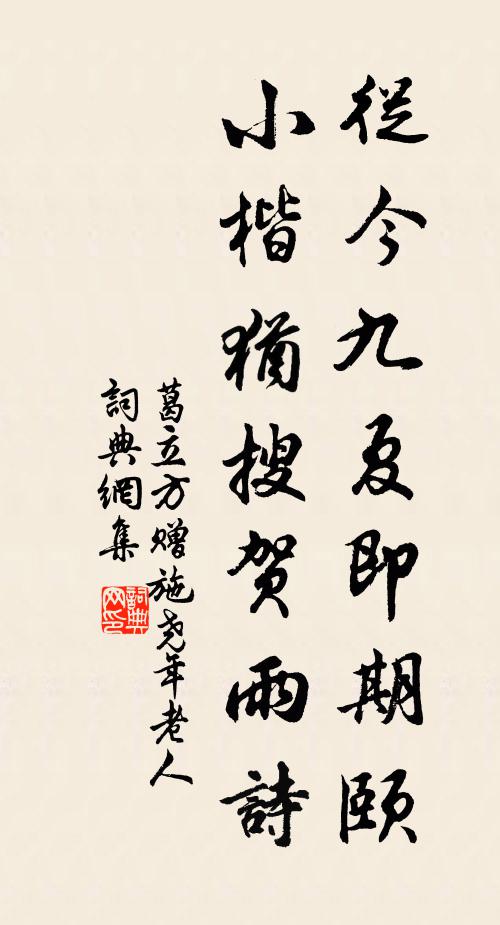 從今九夏即期頤
小楷猶搜賀雨詩
葛立方贈施尧年老人
詞典網集
詞典网印